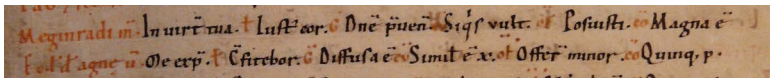 Meginradi m̅. In virt̅ tua. Iust͛ cor. Dn̅e p̅uen̅. Siq͛s vult. Posuisti. Magna e̅
d agne v̅. Me exp̅. C̅fitebor. Diffusa e̅ Simil̅ e̅ x. Offer̅ minor. co Quinq, p.